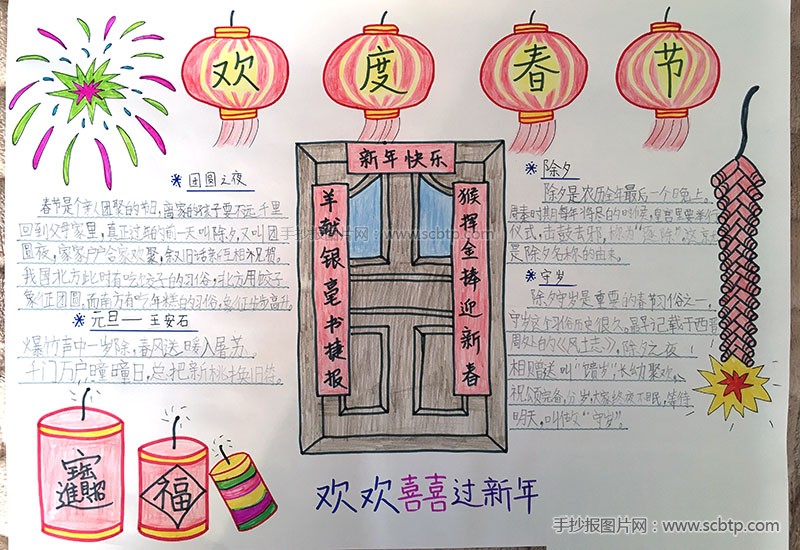 欢度春节
新年快乐
羊献银毫书捷报
猴挥金棒迎新春
团圆之夜
春节是个亲人团聚的节日,离家的孩子要不远千里
回到父母家里,真正过年的前一天叫除夕,又叫团
圆夜,家家户户合家欢聚,叙旧话新,互相祝贺。
我国北方此时有吃饺子的习俗,北方用饺子
象征团圆,而南方有吃年糕的习俗,象征步步高升。
元旦——王安石
爆竹声中一岁除,春风送暖入屠苏。
千门万户曈曈日,总把新桃换旧符。
除夕
除夕是农历全年最后一个晚上。
仪式,击鼓去邪,称为"逐除",这就
是除夕名称的由来。
守岁
除夕守岁是重要的春节习俗之一,
守岁这个习俗历史很久。最早记载于西晋
周处的《风土志》,除夕之夜!
相赠送叫"馈岁"长幼聚欢,
祝颂完备,分岁,大家终夜不眠,等待
明天,叫做"守岁"。
招财進寶
福
欢欢喜喜过新年
手抄报图片网 www.scbtp.com
手抄报图片网:www.scbtp.com